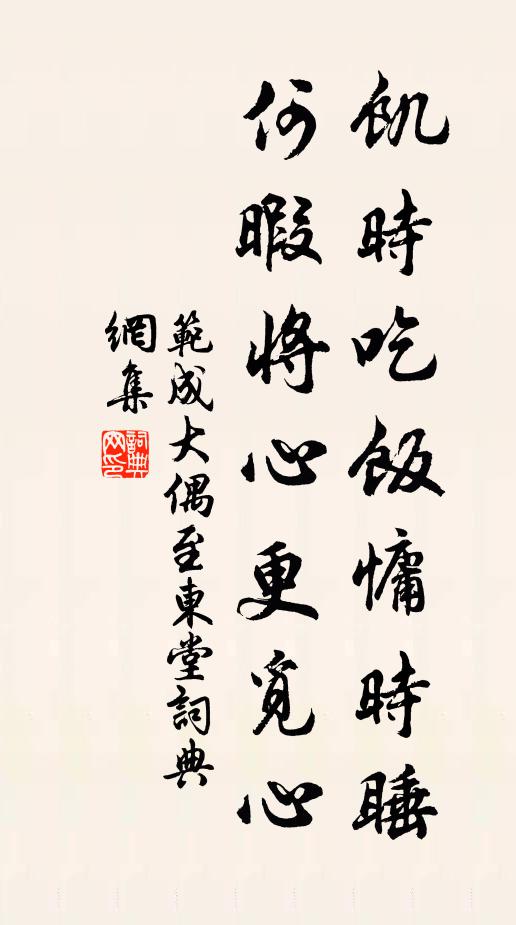 飢時吃飯慵時睡
何暇將心更覓心
範成大偶至東堂詞典
網集
詞典
网印